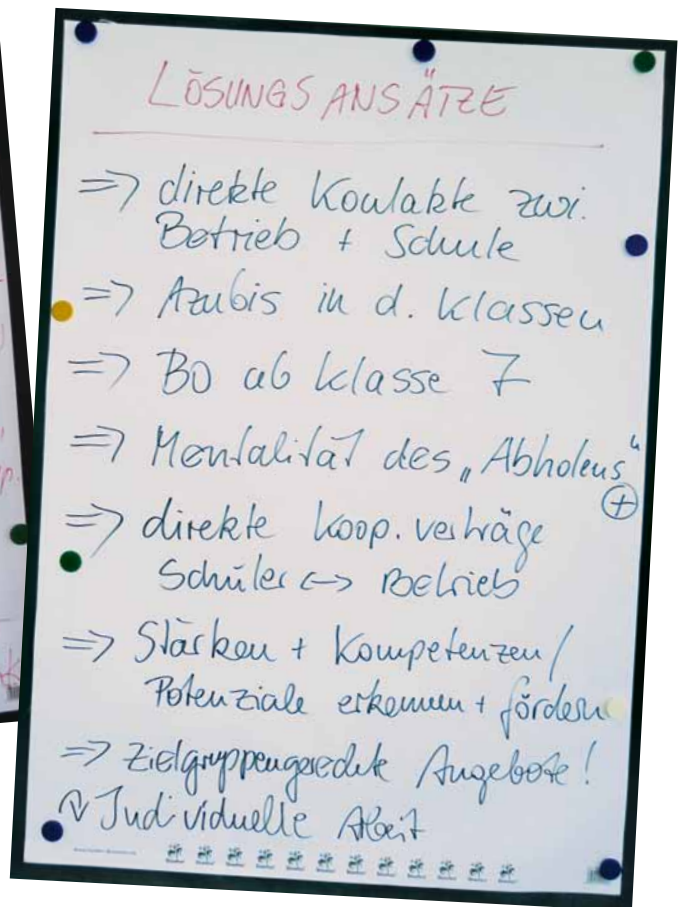 LÖSUNGSANSÄTZE
=> direkte Kontakte zwi.
Betrieb + Schule
=> Azubis in d. Klassen
=> BO ab Klasse 7
=> Mentalität des „Abholens“
+
=> direkte Koop.verträge
Schüler <-> Betrieb
=> Stärken + Kompetenzen /
Potenziale erkennen + fördern
=> Zielgruppengerechte Angebote!
Individuelle Arbeit